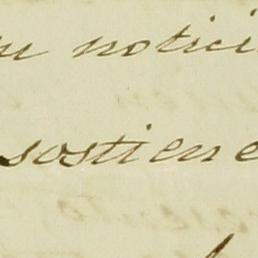 su notici
sostiene